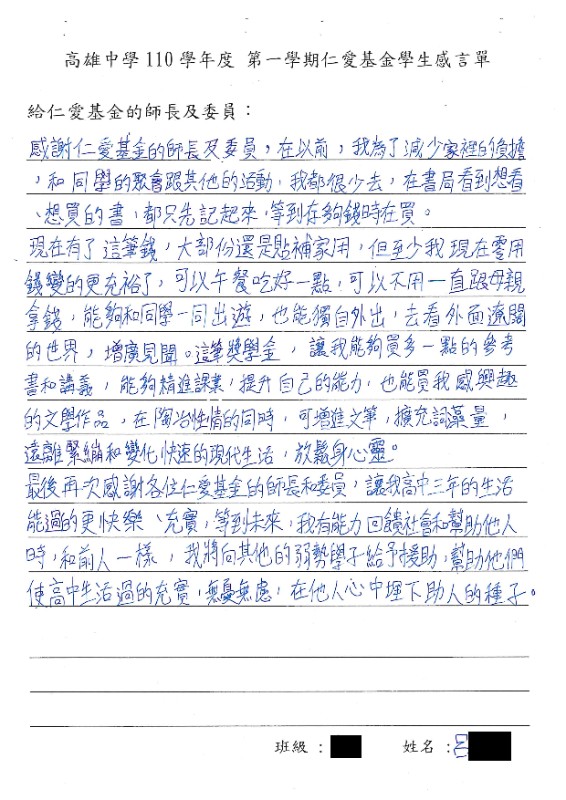 高雄中學 110 學年度 第一學期仁愛基金學生感言單
給仁愛基金的師長及委員：
感謝仁愛基金的師長及委員，在以前，我為了減少家裡的負擔
，和同學的聚會跟其他的活動，我都很少去，在書局看到想看
、想買的書，都只先記起來，等到存夠錢時在買。
現在有了這筆錢，大部份還是貼補家用，但至少我現在零用
錢變的更充裕了，可以午餐吃好一點，可以不用一直跟母親
拿錢，能夠和同學一同出遊，也能獨自外出，去看外面遼闊
的世界，增廣見聞。這筆獎學金，讓我能夠買多一點的參考
書和講義，能夠精進課業，提升自己的能力，也能買我感興趣
的文學作品，在陶冶性情的同時，可增進文筆，擴充詞藻量，
遠離緊繃和變化快速的現代生活，放鬆身心靈。
最後再次感謝各位仁愛基金的師長和委員，讓我高中三年的生活
能過的更快樂、充實，等到未來，我有能力回饋社會和幫助他人
時，和前人一樣，我將向其他的弱勢學子給予援助，幫助他們
使高中生活過的充實，無憂無慮，在他人心中埋下助人的種子。
班級： 姓名：